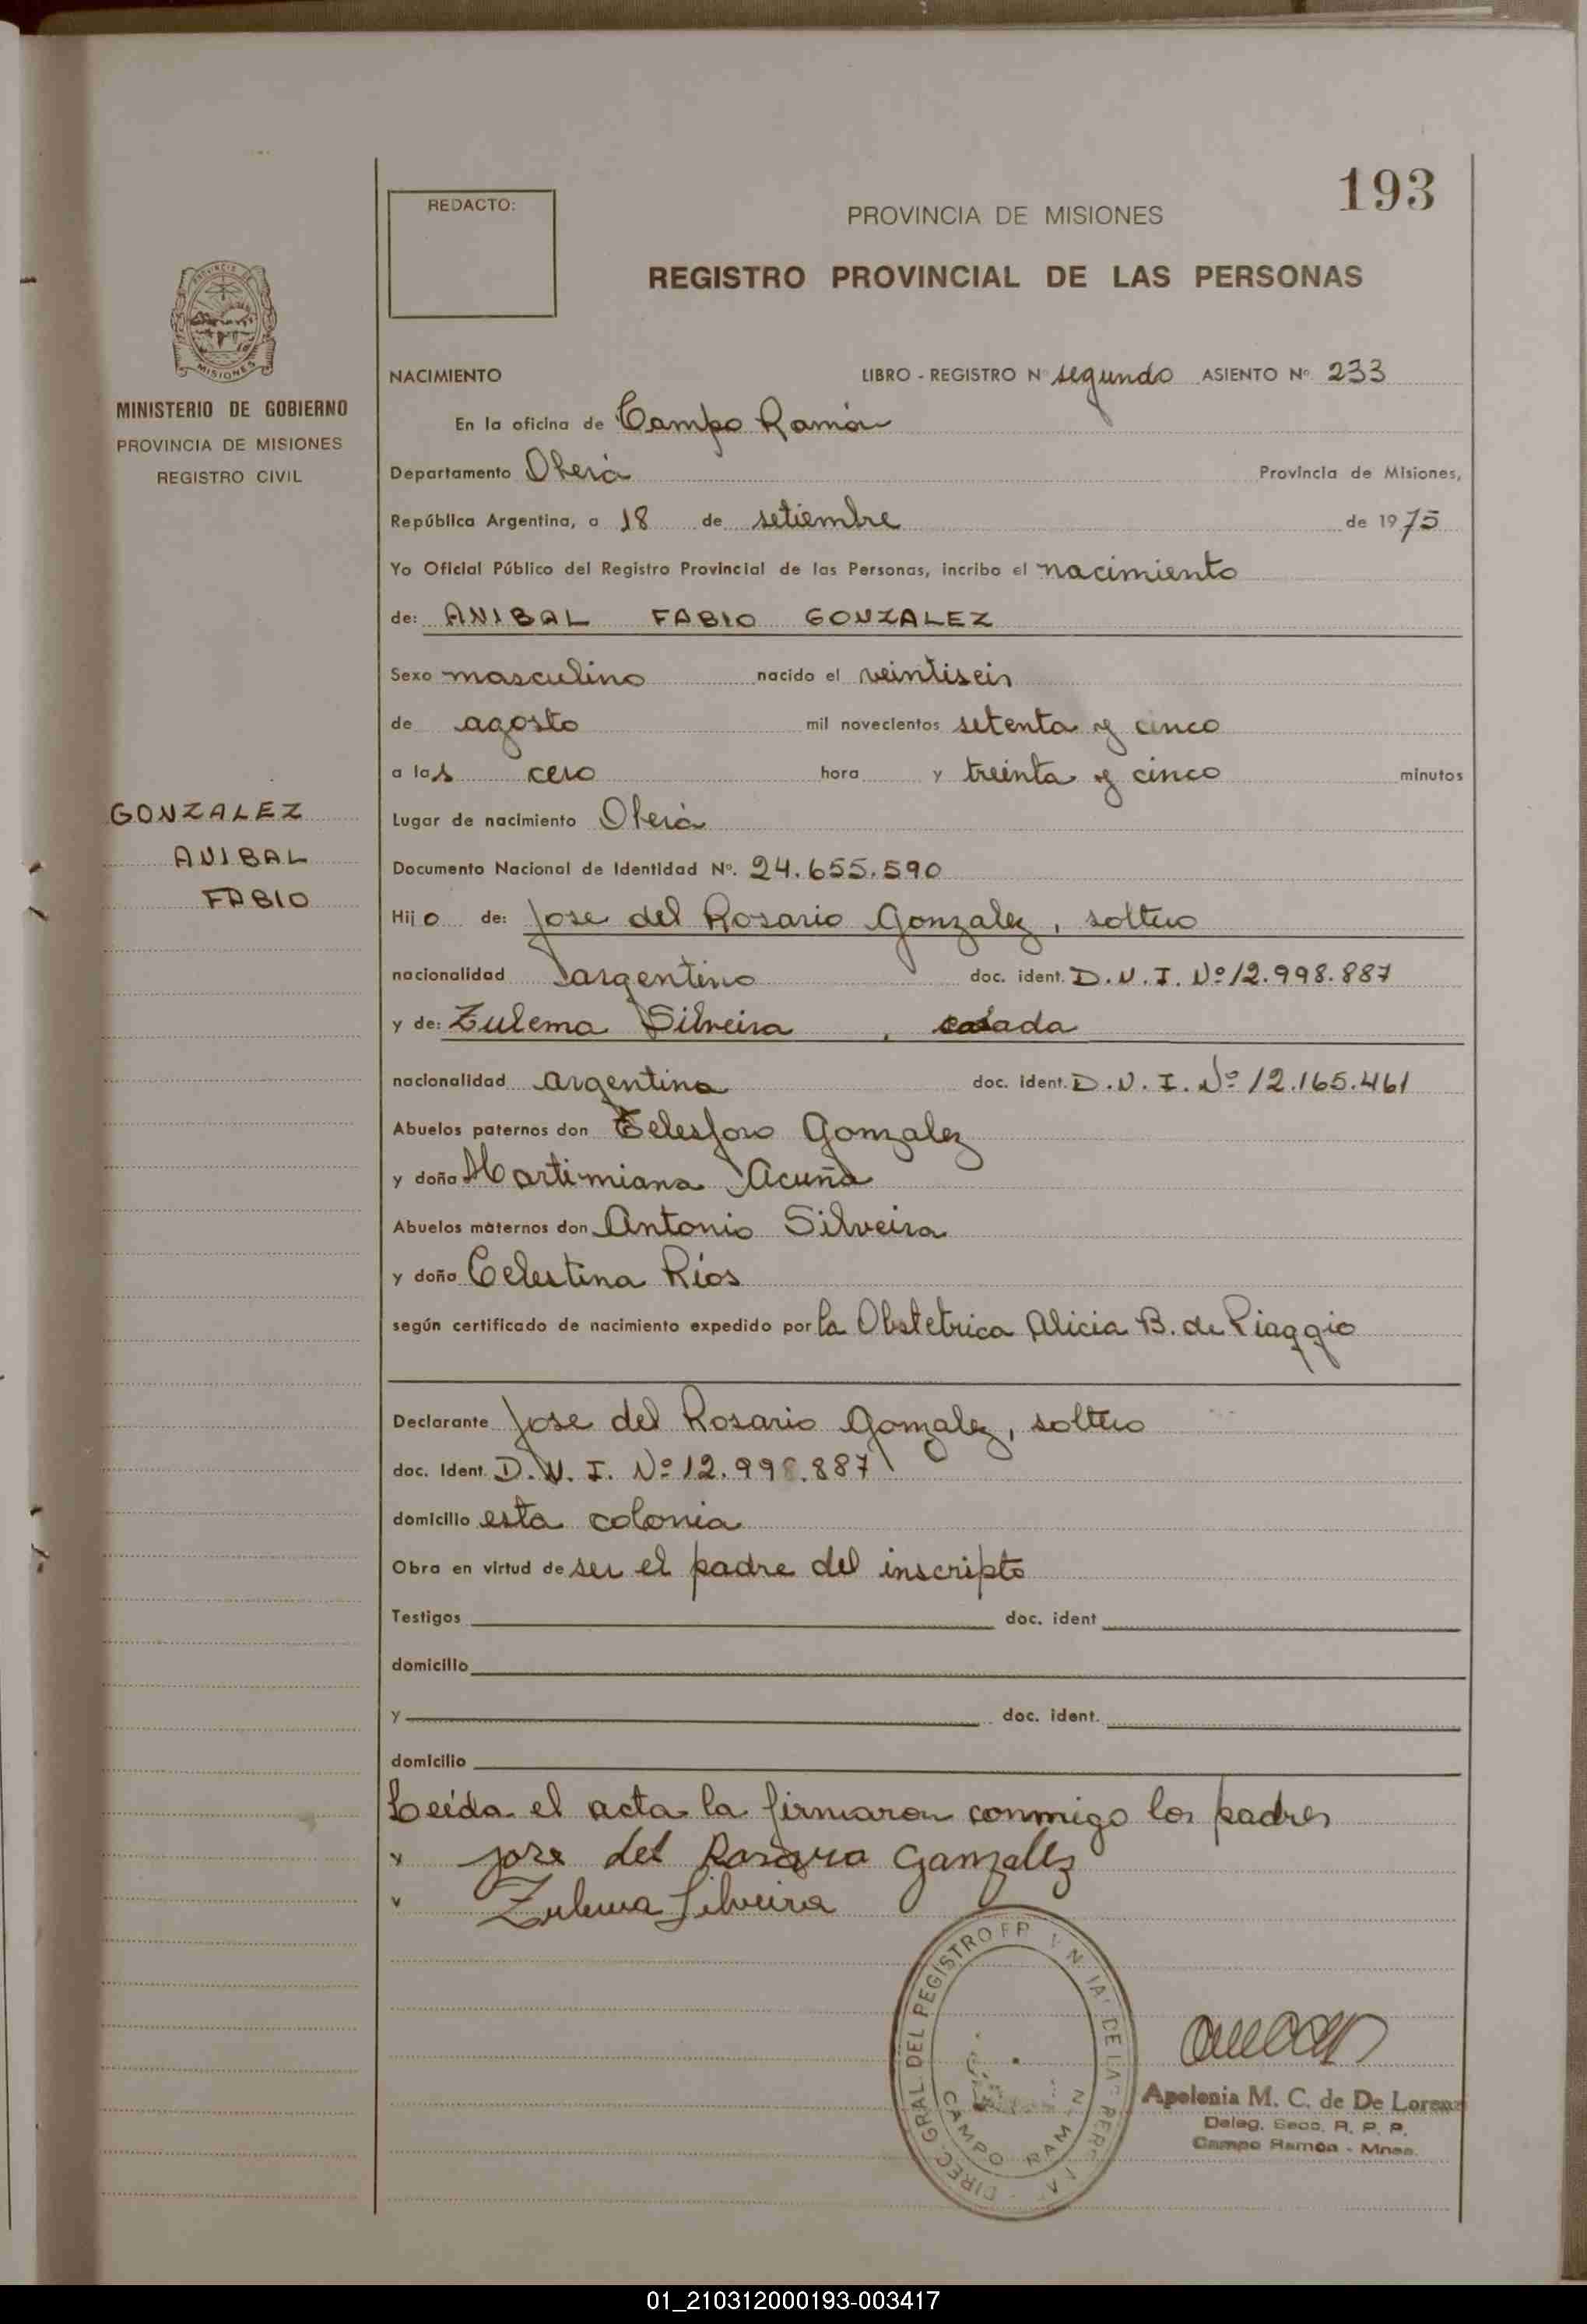 193
REDACTO:
PROVINCIA DE MISIONES
REGISTRO PROVINCIAL DE LAS PERSONAS
MISIONES
MINISTERIO DE GOBIERNO
PROVINCIA DE MISIONES
REGISTRO CIVIL
GONZALEZ
ANIBAL
FABIO
NACIMIENTO LIBRO - REGISTRO Nº segundo ASIENTO Nº 233
En la oficina de Campo Ramón
Departamento Oberá Provincia de Misiones,
República Argentina, a 18 de setiembre de 1975
Yo Oficial Público del Registro Provincial de las Personas, incribo el nacimiento
de: ANIBAL FABIO GONZALEZ
Sexo masculino nacido el veintiseis
de agosto mil novecientos setenta y cinco
a las cero hora y treinta y cinco minutos
Lugar de nacimiento Oberá
Documento Nacional de Identidad Nº. 24.655.590
Hijo de: Jose del Rosario Gonzalez, soltero
nacionalidad argentino doc. ident. D.N.I. Nº 12.998.887
y de: Zulema Silveira, casada
nacionalidad argentina doc. ident. D.N.I. Nº 12.165.461
Abuelos paternos don Telesforo Gonzalez
y doña Martimiana Acuña
Abuelos maternos don Antonio Silveira
y doña Celestina Ríos
según certificado de nacimiento expedido por la Obstetrica Alicia B. de Piaggio
Declarante Jose del Rosario Gonzalez, soltero
doc. Ident. D.N.I. Nº 12.998.887
domicilio esta colonia
Obra en virtud de ser el padre del inscripto
Testigos doc. ident
domicilio
y doc. ident.
domicilio
Leida el acta la firmaron conmigo los padres
x jose del Rosario Gonzalez
v Zulema Silveira
DIREC. GRAL. DEL REGISTRO
CAMPO RAMON
Apolonia M. C. de De Lorenz
Deleg. Secc. R. P. P.
Campo Ramón - Mnes.
01_210312000193-003417